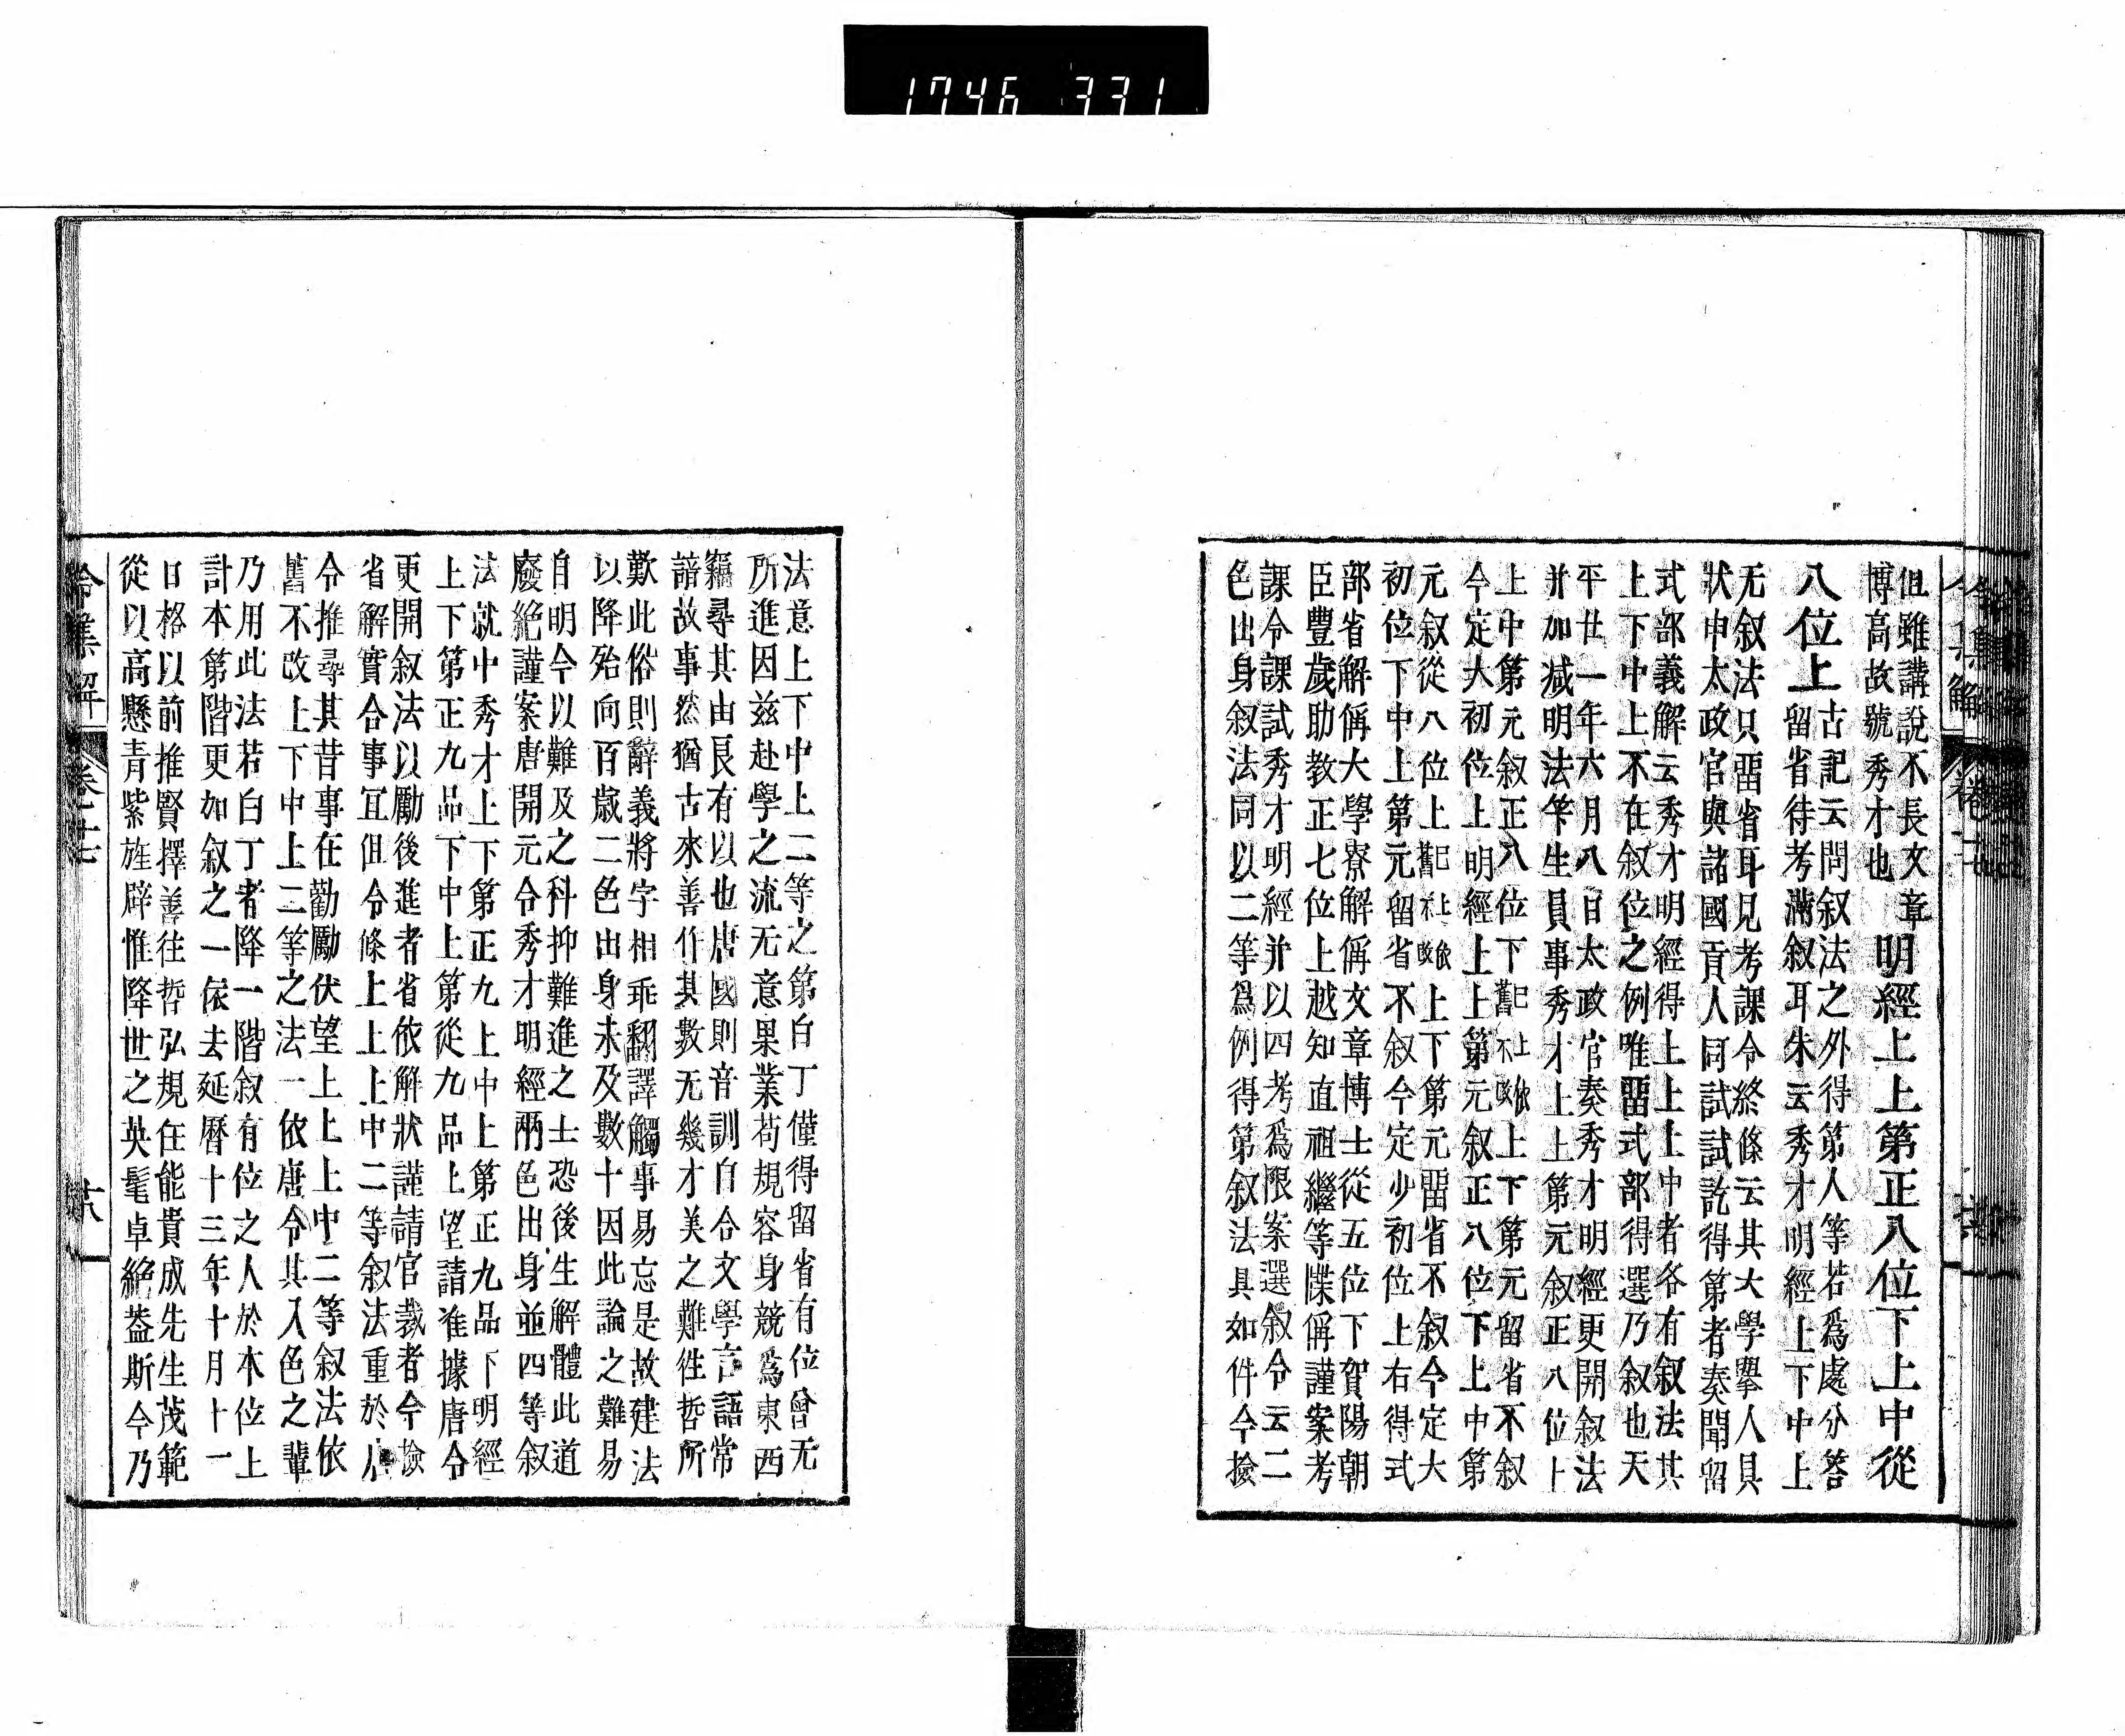 1746 331
但雖講說不長文章
博高故號秀才也
明經上上第正八位下上中從
八位上
古記云問叙法之外得第人等若爲處分答
留省待考滿叙耳朱云秀才明經上下中上
无叙法只畱省耳見考課令終條云其大學擧人具
狀申太政官與諸國貢人同試試訖得第者奏聞留
式部義解云秀才明經得上上上中者各有叙法其
上下中上不在叙位之例唯畱式部得選乃叙也天
平廿一年六月八日太政官奏秀才明經更開叙法
并加减明法笇生員事秀才上上第元叙正八位上
上中第元叙正八位下
舊不改
已上依
上下第元留省不叙
今定大初位上明經上上第元叙正八位下上中第
元叙從八位上
舊不改
已上依
上下第元畱省不叙今定大
初位下中上第元留省不叙今定少初位上右得式
部省解偁大學寮解偁文章博士從五位下賀陽朝
臣豐歲助教正七位上越知直祖繼等牒偁謹案考
課令課試秀才明經并以四考爲限案選叙令云二
色出身叙法同以二等爲例得第叙法具如件今撿
令集解 卷十七
法意上下中上二等之第白丁僅得留省有位曾无
所進因兹赴學之流无意果業苟規容身競爲東西
竊尋其由良有以也唐國則音訓自合文學言語常
諳故事然猶古來善作其數无幾才美之難徃哲所
歎此俗則辭義將字相乖翻譯觸事易忘是故建法
以降殆向百歲二色出身未及數十因此論之難易
自明今以難及之科抑難進之士恐後生解體此道
廢絶謹案唐開元令秀才明經兩色出身並四等叙
法就中秀才上下第正九上中上第正九品下明經
上下第正九品下中上第從九品上望請准據唐令
更開叙法以勵後進者省依解狀謹請官裁者今撿
省解實合事冝但令條上上上中二等叙法重於唐
令推尋其昔事在勸勵伏望上上上中二等叙法依
舊不改上下中上二等之法一依唐令其入色之輩
乃用此法若白丁者降一階叙有位之人於本位上
計本第階更加叙之一依去延曆十三年十月十一
日格以前推賢擇善往哲弘規任能貴成先生茂範
從以高懸青紫旌辟惟降世之英髦卓絶葢斯今乃
令集解 卷十七 廿八